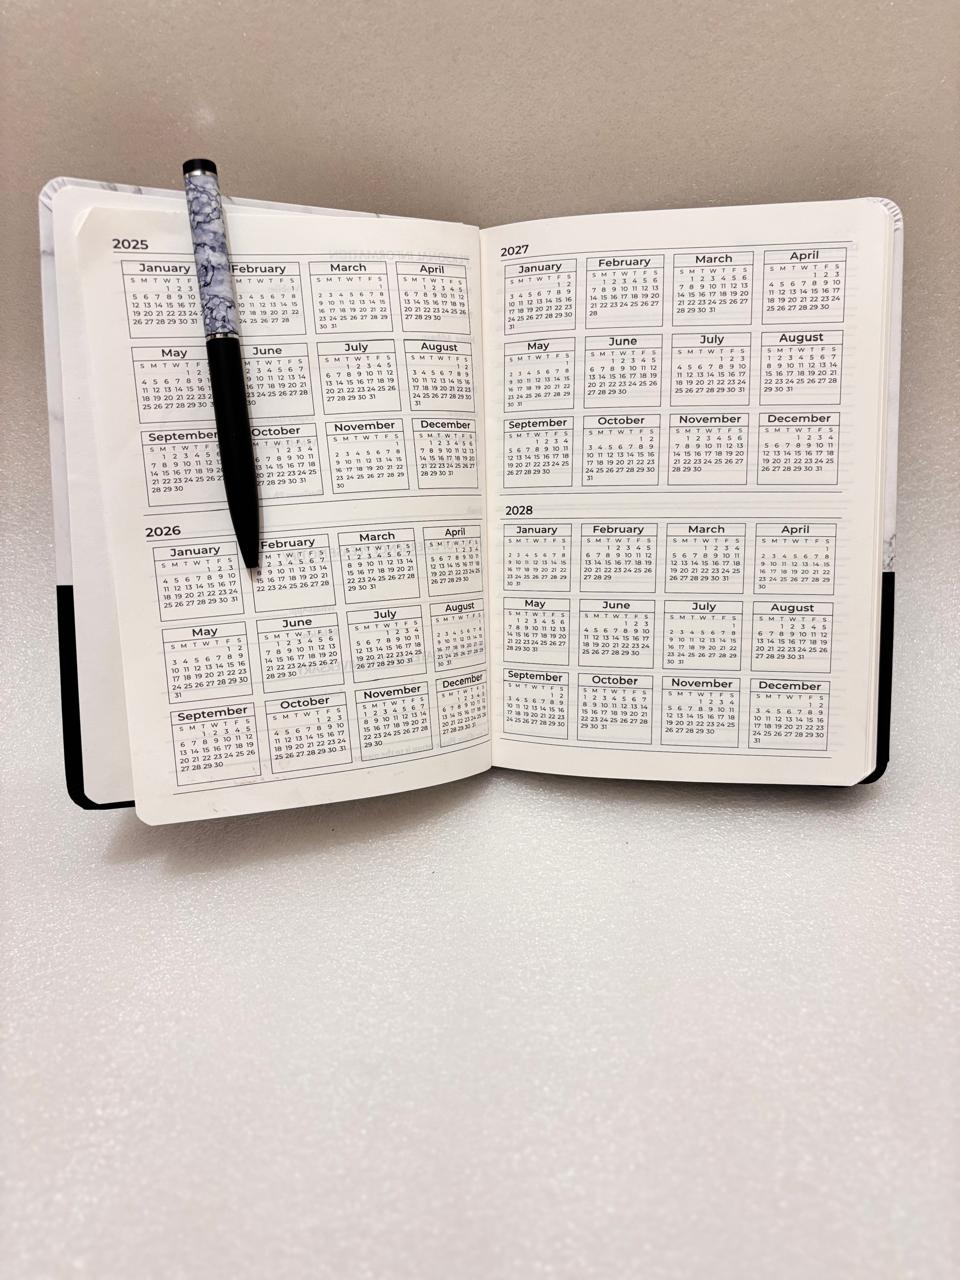 2025
January
S M T W T F
1 2 3
5 6 7 8 9 10
12 13 14 15 16 17
19 20 21 22 23 24
26 27 28 29 30 31
February
M T W T F S
1
3 4 5 6 7 8
10 11 12 13 14 15
17 18 19 20 21 22
24 25 26 27 28
March
S M T W T F S
1
2 3 4 5 6 7 8
9 10 11 12 13 14 15
16 17 18 19 20 21 22
23 24 25 26 27 28 29
30 31
April
S M T W T F S
1 2 3 4 5
6 7 8 9 10 11 12
13 14 15 16 17 18 19
20 21 22 23 24 25 26
27 28 29 30
May
S M T W T F
1 2
4 5 6 7 8 9
11 12 13 14 15 16
18 19 20 21 22 23
25 26 27 28 29 30
June
M T W T F S
2 3 4 5 6 7
9 10 11 12 13 14
16 17 18 19 20 21
23 24 25 26 27 28
30
July
S M T W T F S
1 2 3 4 5
6 7 8 9 10 11 12
13 14 15 16 17 18 19
20 21 22 23 24 25 26
27 28 29 30 31
August
S M T W T F S
1 2
3 4 5 6 7 8 9
10 11 12 13 14 15 16
17 18 19 20 21 22 23
24 25 26 27 28 29 30
31
September
S M T W T F
1 2 3 4 5
7 8 9 10 11 12
14 15 16 17 18 19
21 22 23 24 25 26
28 29 30
October
T W T F S
1 2 3 4
6 7 8 9 10 11
13 14 15 16 17 18
20 21 22 23 24 25
27 28 29 30 31
November
S M T W T F S
1
2 3 4 5 6 7 8
9 10 11 12 13 14 15
16 17 18 19 20 21 22
23 24 25 26 27 28 29
30
December
S M T W T F S
1 2 3 4 5 6
7 8 9 10 11 12 13
14 15 16 17 18 19 20
21 22 23 24 25 26 27
28 29 30 31
2026
January
S M T W T F S
1 2 3
4 5 6 7 8 9 10
11 12 13 14 15 16 17
18 19 20 21 22 23 24
25 26 27 28 29 30 31
February
S M T W T F S
1 2 3 4 5 6 7
8 9 10 11 12 13 14
15 16 17 18 19 20 21
22 23 24 25 26 27 28
March
S M T W T F S
1 2 3 4 5 6 7
8 9 10 11 12 13 14
15 16 17 18 19 20 21
22 23 24 25 26 27 28
29 30 31
April
S M T W T F S
1 2 3 4
5 6 7 8 9 10 11
12 13 14 15 16 17 18
19 20 21 22 23 24 25
26 27 28 29 30
May
S M T W T F S
1 2
3 4 5 6 7 8 9
10 11 12 13 14 15 16
17 18 19 20 21 22 23
24 25 26 27 28 29 30
31
June
S M T W T F S
1 2 3 4 5 6
7 8 9 10 11 12 13
14 15 16 17 18 19 20
21 22 23 24 25 26 27
28 29 30
July
S M T W T F S
1 2 3 4
5 6 7 8 9 10 11
12 13 14 15 16 17 18
19 20 21 22 23 24 25
26 27 28 29 30 31
August
S M T W T F S
1
2 3 4 5 6 7 8
9 10 11 12 13 14 15
16 17 18 19 20 21 22
23 24 25 26 27 28 29
30 31
September
S M T W T F S
1 2 3 4 5
6 7 8 9 10 11 12
13 14 15 16 17 18 19
20 21 22 23 24 25 26
27 28 29 30
October
S M T W T F S
1 2 3
4 5 6 7 8 9 10
11 12 13 14 15 16 17
18 19 20 21 22 23 24
25 26 27 28 29 30 31
November
S M T W T F S
1 2 3 4 5 6 7
8 9 10 11 12 13 14
15 16 17 18 19 20 21
22 23 24 25 26 27 28
29 30
December
S M T W T F S
1 2 3 4 5
6 7 8 9 10 11 12
13 14 15 16 17 18 19
20 21 22 23 24 25 26
27 28 29 30 31
2027
January
S M T W T F S
1 2
3 4 5 6 7 8 9
10 11 12 13 14 15 16
17 18 19 20 21 22 23
24 25 26 27 28 29 30
31
February
S M T W T F S
1 2 3 4 5 6
7 8 9 10 11 12 13
14 15 16 17 18 19 20
21 22 23 24 25 26 27
28
March
S M T W T F S
1 2 3 4 5 6
7 8 9 10 11 12 13
14 15 16 17 18 19 20
21 22 23 24 25 26 27
28 29 30 31
April
S M T W T F S
1 2 3
4 5 6 7 8 9 10
11 12 13 14 15 16 17
18 19 20 21 22 23 24
25 26 27 28 29 30
May
S M T W T F S
1
2 3 4 5 6 7 8
9 10 11 12 13 14 15
16 17 18 19 20 21 22
23 24 25 26 27 28 29
30 31
June
S M T W T F S
1 2 3 4 5
6 7 8 9 10 11 12
13 14 15 16 17 18 19
20 21 22 23 24 25 26
27 28 29 30
July
S M T W T F S
1 2 3
4 5 6 7 8 9 10
11 12 13 14 15 16 17
18 19 20 21 22 23 24
25 26 27 28 29 30 31
August
S M T W T F S
1 2 3 4 5 6 7
8 9 10 11 12 13 14
15 16 17 18 19 20 21
22 23 24 25 26 27 28
29 30 31
September
S M T W T F S
1 2 3 4
5 6 7 8 9 10 11
12 13 14 15 16 17 18
19 20 21 22 23 24 25
26 27 28 29 30
October
S M T W T F S
1 2
3 4 5 6 7 8 9
10 11 12 13 14 15 16
17 18 19 20 21 22 23
24 25 26 27 28 29 30
31
November
S M T W T F S
1 2 3 4 5 6
7 8 9 10 11 12 13
14 15 16 17 18 19 20
21 22 23 24 25 26 27
28 29 30
December
S M T W T F S
1 2 3 4
5 6 7 8 9 10 11
12 13 14 15 16 17 18
19 20 21 22 23 24 25
26 27 28 29 30 31
2028
January
S M T W T F S
1
2 3 4 5 6 7 8
9 10 11 12 13 14 15
16 17 18 19 20 21 22
23 24 25 26 27 28 29
30 31
February
S M T W T F S
1 2 3 4 5
6 7 8 9 10 11 12
13 14 15 16 17 18 19
20 21 22 23 24 25 26
27 28 29
March
S M T W T F S
1 2 3 4
5 6 7 8 9 10 11
12 13 14 15 16 17 18
19 20 21 22 23 24 25
26 27 28 29 30 31
April
S M T W T F S
1
2 3 4 5 6 7 8
9 10 11 12 13 14 15
16 17 18 19 20 21 22
23 24 25 26 27 28 29
30
May
S M T W T F S
1 2 3 4 5 6
7 8 9 10 11 12 13
14 15 16 17 18 19 20
21 22 23 24 25 26 27
28 29 30 31
June
S M T W T F S
1 2 3
4 5 6 7 8 9 10
11 12 13 14 15 16 17
18 19 20 21 22 23 24
25 26 27 28 29 30
July
S M T W T F S
1
2 3 4 5 6 7 8
9 10 11 12 13 14 15
16 17 18 19 20 21 22
23 24 25 26 27 28 29
30 31
August
S M T W T F S
1 2 3 4 5
6 7 8 9 10 11 12
13 14 15 16 17 18 19
20 21 22 23 24 25 26
27 28 29 30 31
September
S M T W T F S
1 2
3 4 5 6 7 8 9
10 11 12 13 14 15 16
17 18 19 20 21 22 23
24 25 26 27 28 29 30
October
S M T W T F S
1 2 3 4 5 6 7
8 9 10 11 12 13 14
15 16 17 18 19 20 21
22 23 24 25 26 27 28
29 30 31
November
S M T W T F S
1 2 3 4
5 6 7 8 9 10 11
12 13 14 15 16 17 18
19 20 21 22 23 24 25
26 27 28 29 30
December
S M T W T F S
1 2
3 4 5 6 7 8 9
10 11 12 13 14 15 16
17 18 19 20 21 22 23
24 25 26 27 28 29 30
31